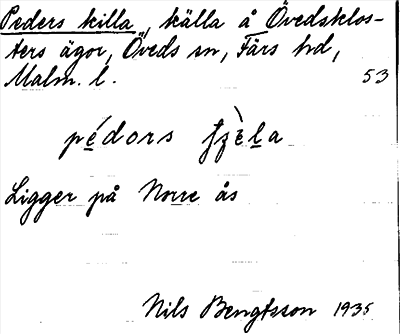 Peders killa, källa å Övedsklos-
ters ägor, Öveds sn, Färs hd,
Malm. l. 53
pédors
Ligger på Norre ås
Nils Bengtsson 1935